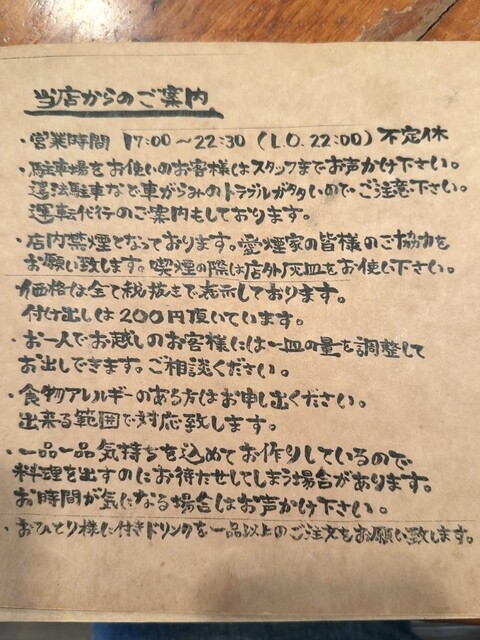 当店からのご案内
・営業時間 17:00〜22:30 (L.O.22:00) 不定休
・駐車場をお使いのお客様はスタッフまでお声がけ下さい。
違法駐車など車がらみのトラブルが多いのでご注意下さい。
運転代行のご案内もしております。
・店内禁煙となっております。愛煙家の皆様のご協力を
お願い致します。喫煙の際は店外灰皿をお使い下さい。
・価格は全て税抜きで表示しております。
付け出しは200円頂いています。
・お一人でお越しのお客様には一皿の量を調整して
お出しできます。ご相談ください。
・食物アレルギーのある方はお申し出ください。
出来る範囲で対応致します。
・一品一品気持ちを込めてお作りしているので
料理を出すのにお待たせしてしまう場合があります。
お時間が気になる場合はお声がけ下さい。
・おひとり様に付きドリンクを一品以上のご注文をお願い致します。